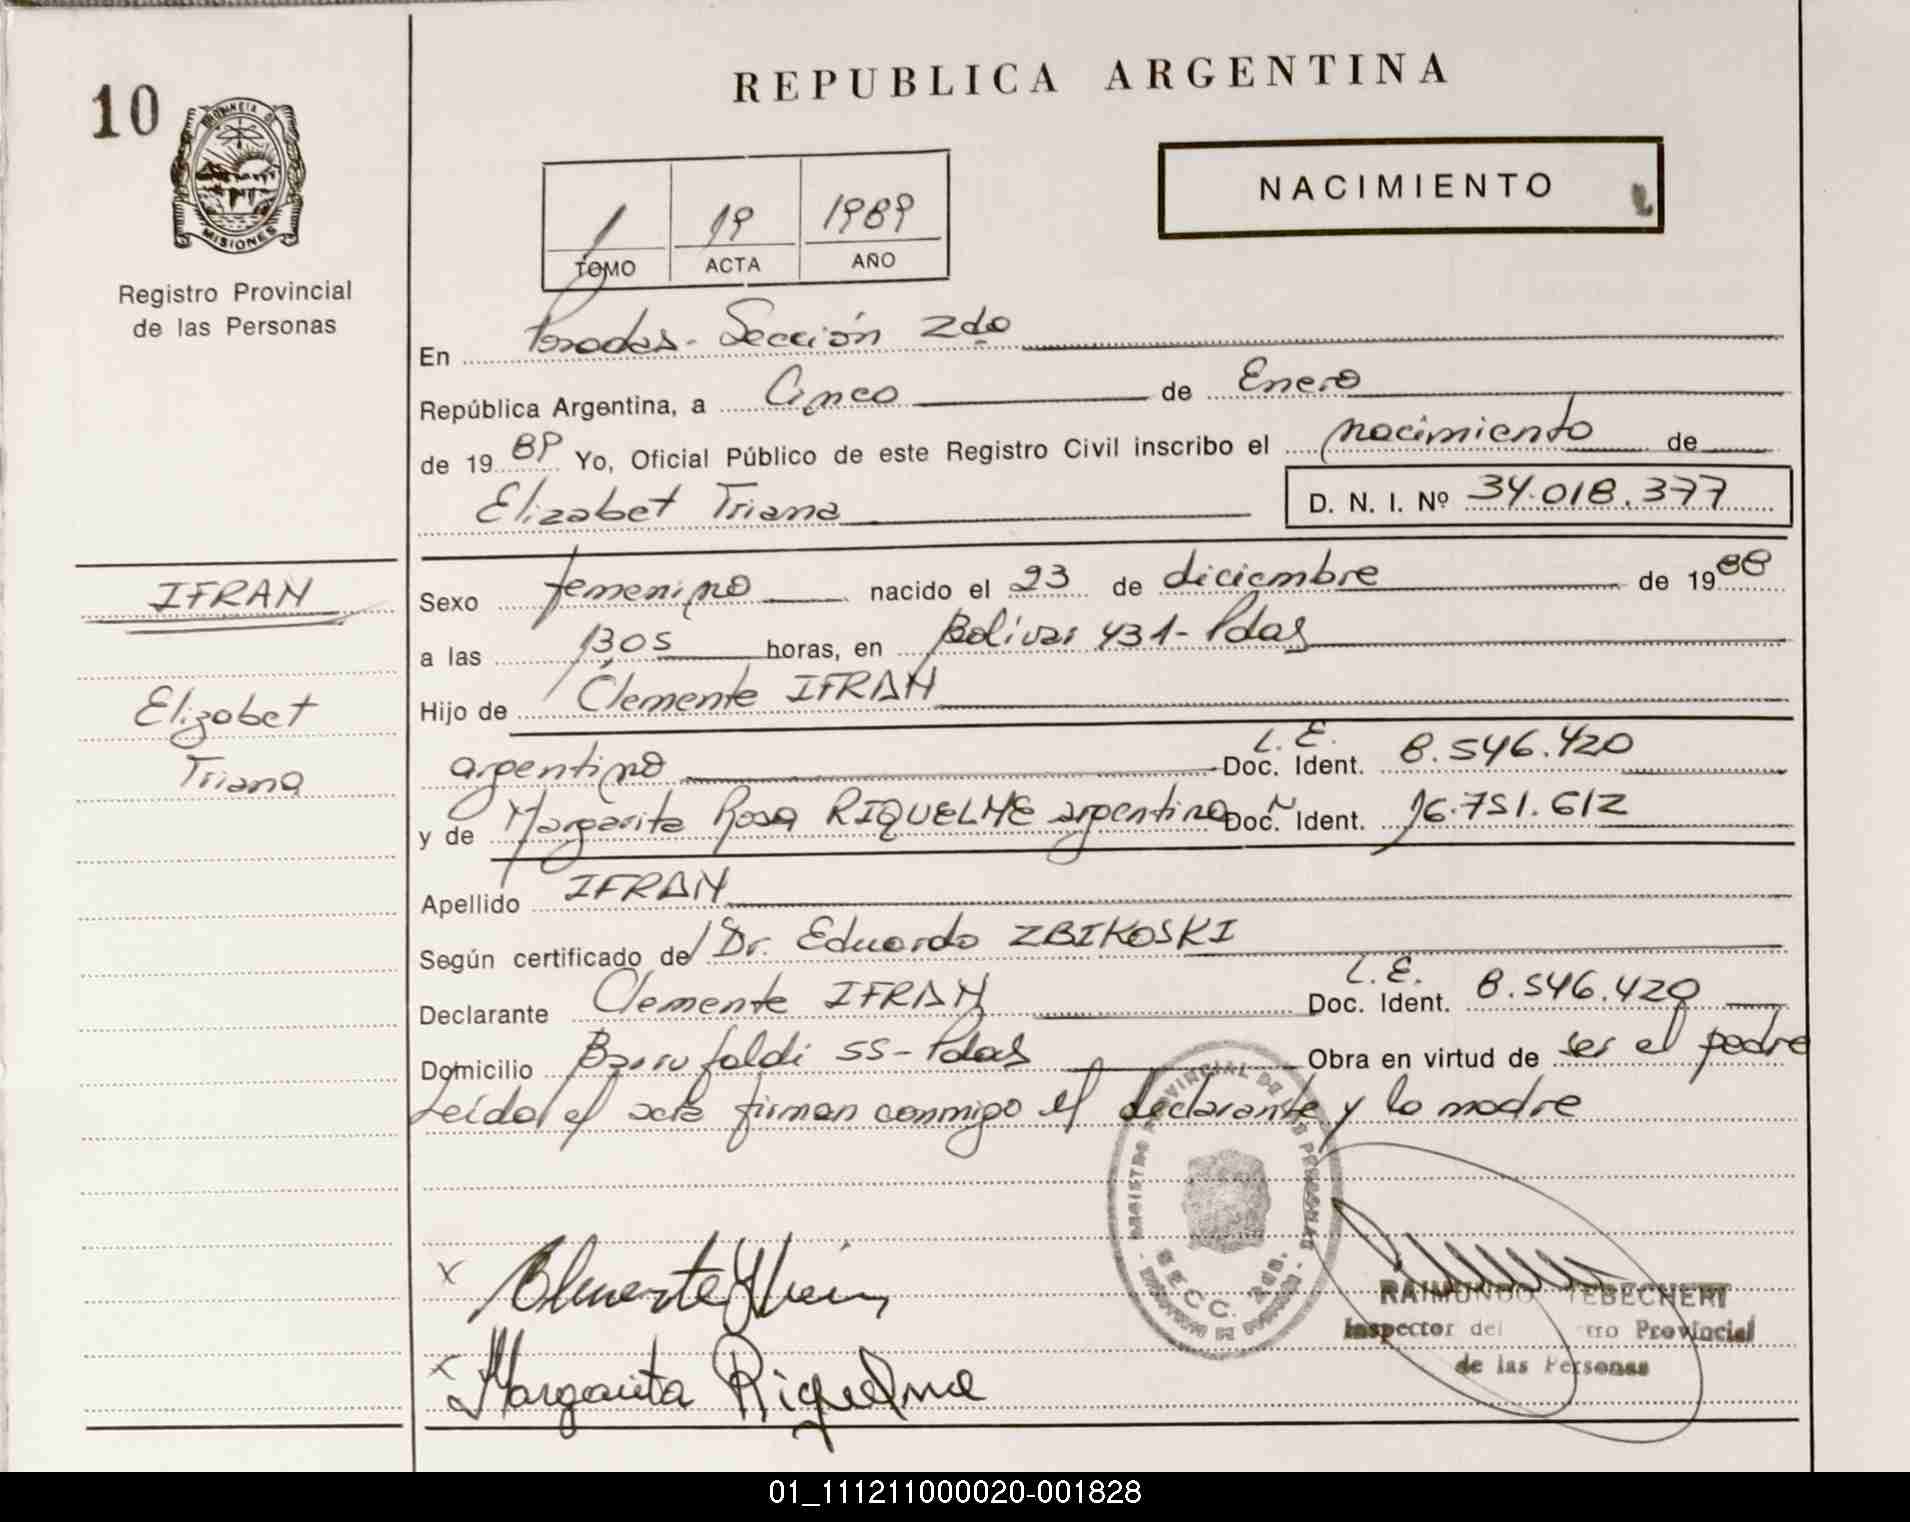 10
PROVINCIA DE
MISIONES
Registro Provincial
de las Personas
REPUBLICA ARGENTINA
NACIMIENTO
1 19 1989
TOMO ACTA AÑO
En Posadas - Sección 2da
República Argentina, a Cinco de Enero
de 1989 Yo, Oficial Público de este Registro Civil inscribo el nacimiento de
Elizabet Triana D. N. I. Nº 34.018.377
IFRAN
Elizabet
Triana
Sexo femenino nacido el 23 de diciembre de 1988
a las 1305 horas, en Bolívar 431 - Pdas
Hijo de Clemente IFRAN
argentino L. E. Doc. Ident. 8.546.420
y de Margarita Rosa RIQUELME argentina Doc. Ident. 16.751.612
Apellido IFRAN
Según certificado de Dr. Eduardo ZBIKOSKI
Declarante Clemente IFRAN L. E. Doc. Ident. 8.546.420
Domicilio Barrufaldi 55 - Pdas Obra en virtud de ser el padre
Leída el acta firman conmigo el declarante y la madre
REGISTRO PROVINCIAL DE LAS PERSONAS
SECC. 2da.
x
x Margarita Riquelme
RAIMUNDO TEBECHERI
Inspector del tro Provincial
de las Personas
01_111211000020-001828